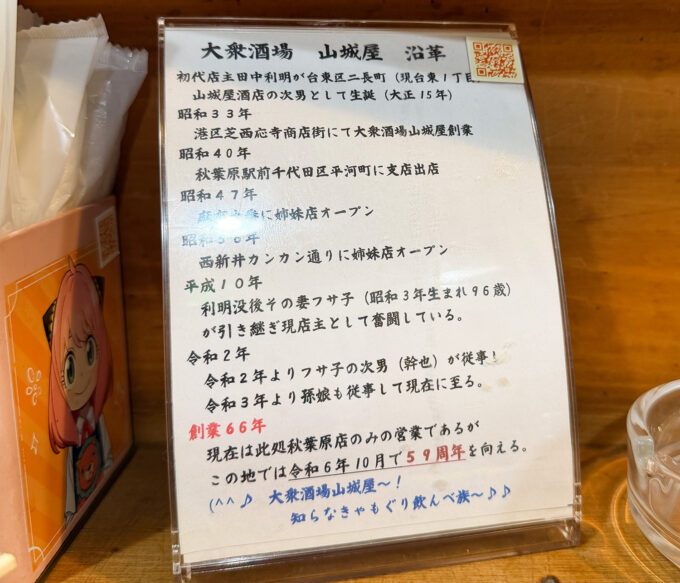 大衆酒場 山城屋 沿革
初代店主田中利明が台東区二長町（現台東１丁目）
山城屋酒店の次男として生誕（大正１５年）
昭和３３年
港区芝西応寺商店街にて大衆酒場山城屋創業
昭和４０年
秋葉原駅前千代田区平河町に支店出店
昭和４７年
に姉妹店オープン
昭和　６年
西新井カンカン通りに姉妹店オープン
平成１０年
利明没後その妻フサ子（昭和３年生まれ９６歳）
が引き継ぎ現店主として奮闘している。
令和２年
令和２年よりフサ子の次男（幹也）が従事！
令和３年より孫娘も従事して現在に至る。
創業６６年
現在は此処秋葉原店のみの営業であるが
この地では令和６年１０月で５９周年を向える。
(^^♪ 大衆酒場山城屋～！
知らなきゃもぐり飲んべ族～♪♪